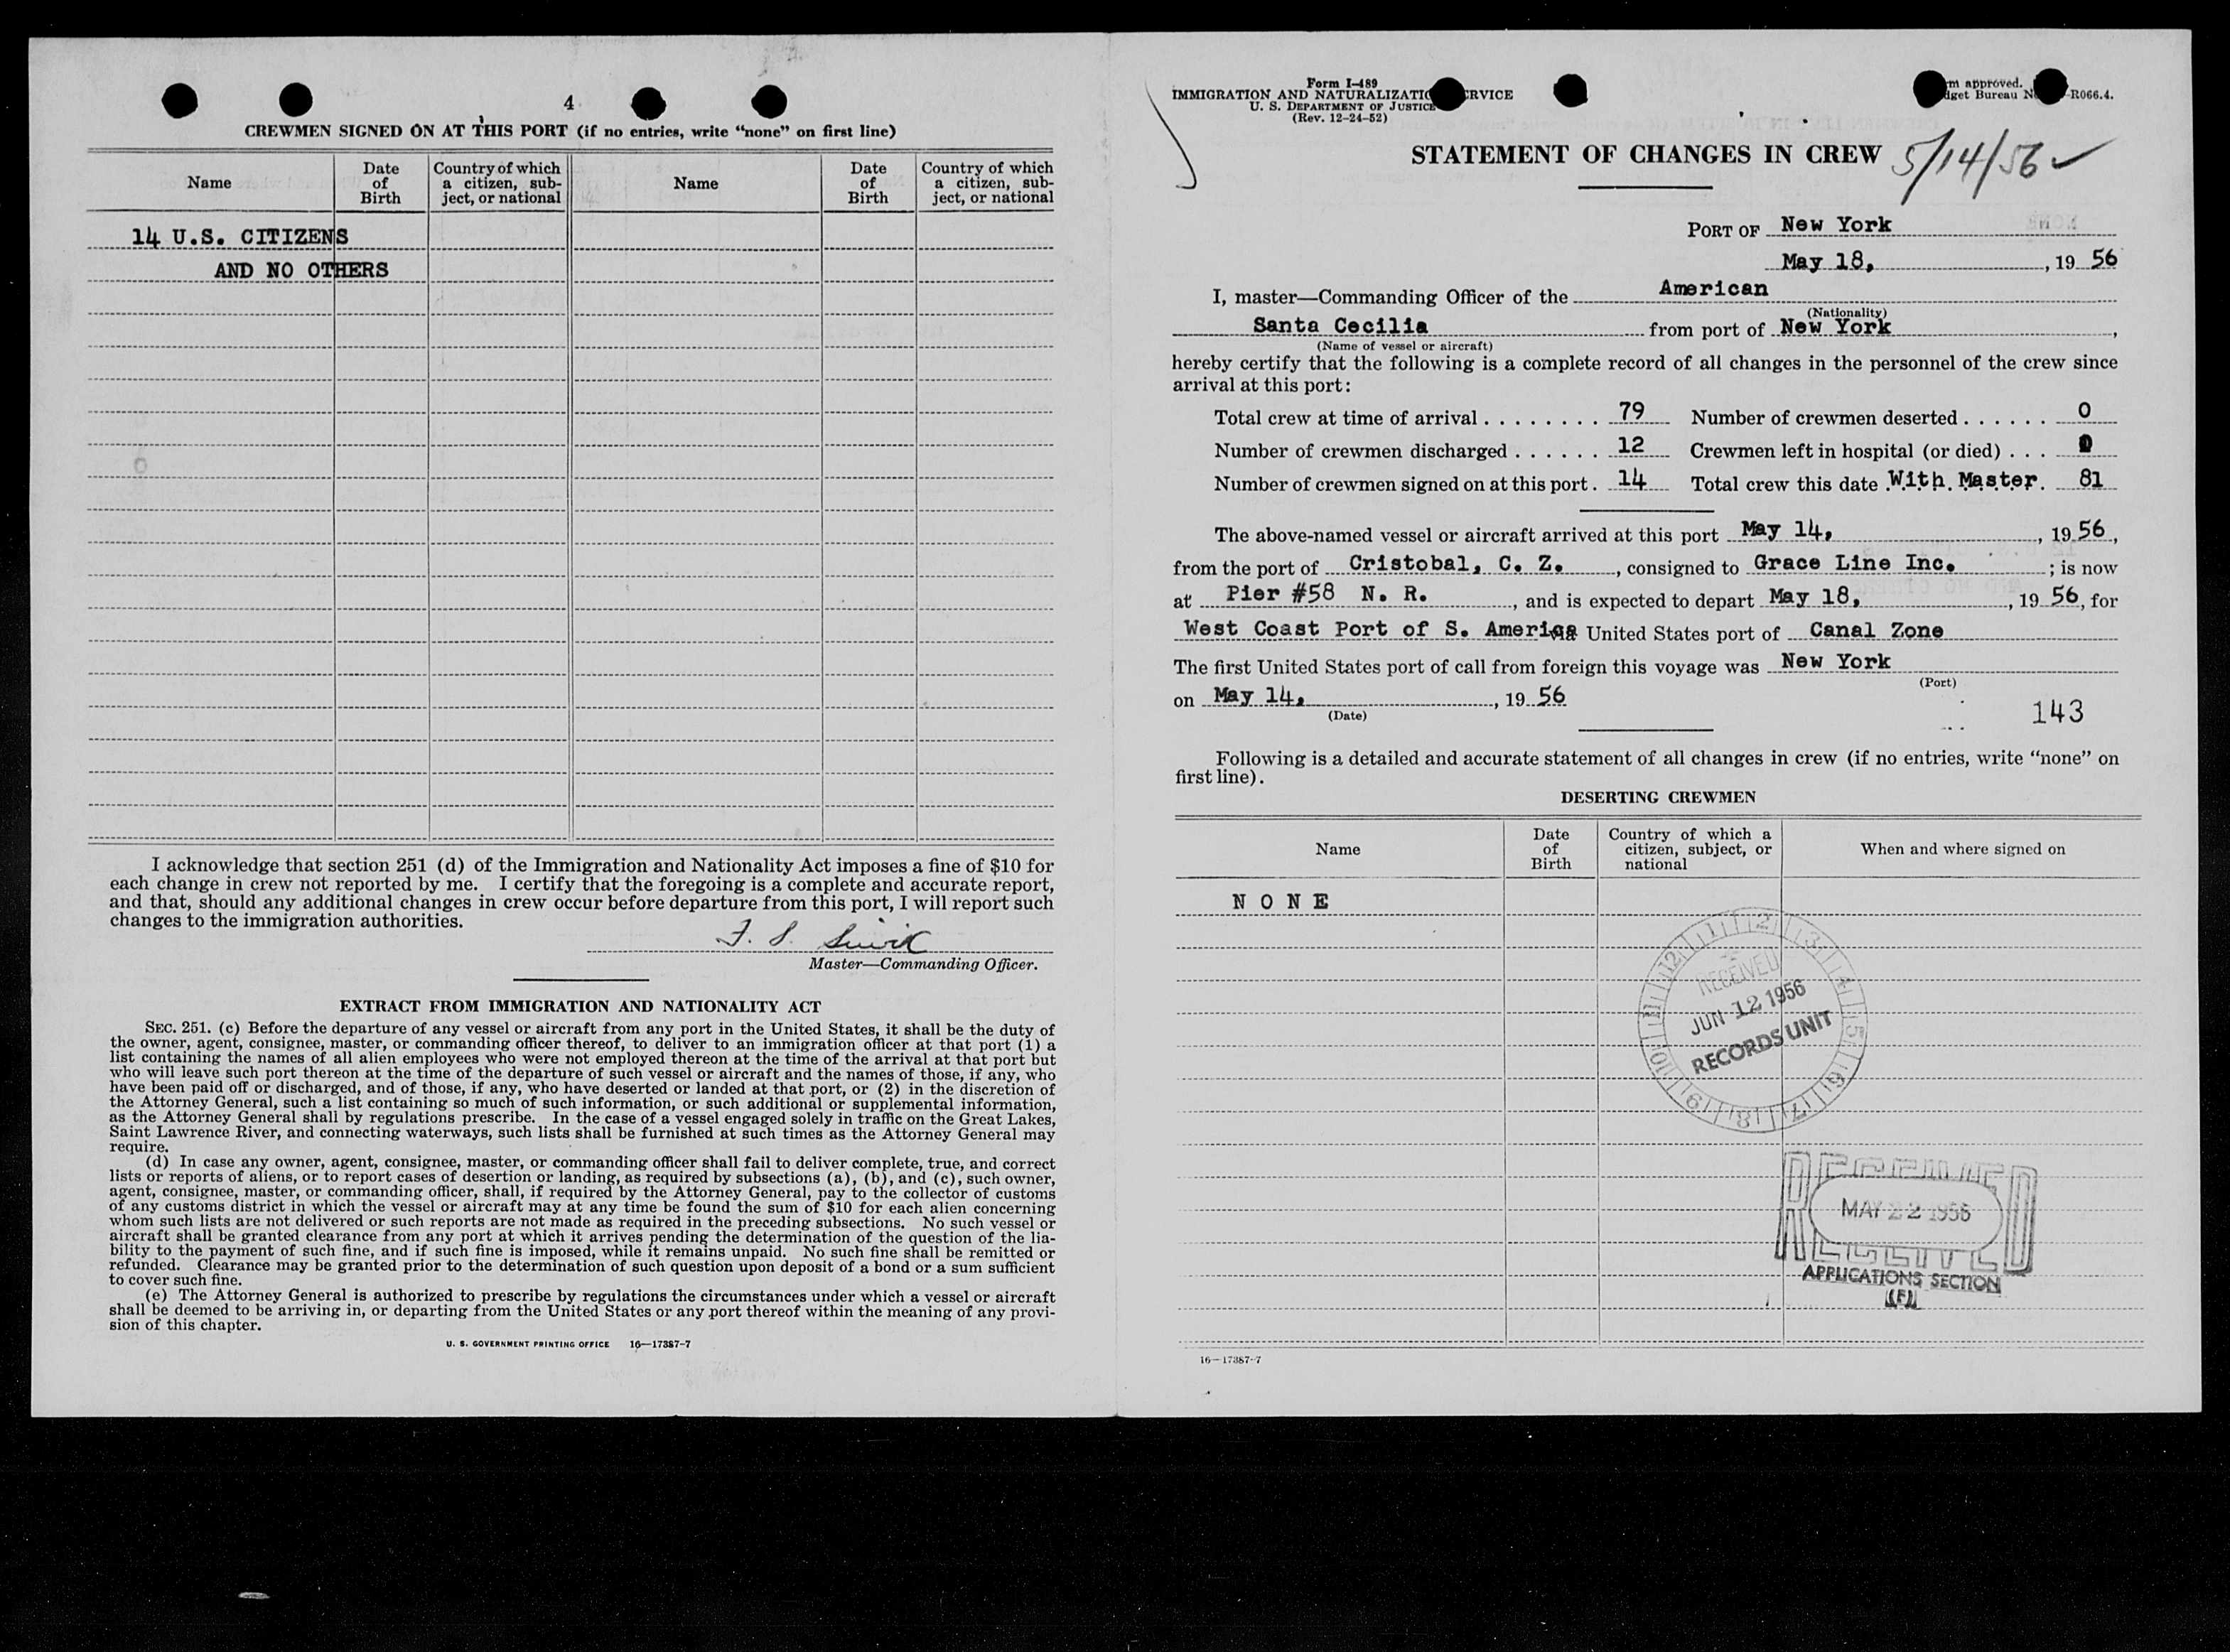 4
CREWMEN SIGNED ON AT THIS PORT (if no entries, write “none” on first line)
Name
Date of Birth
Country of which a citizen, sub-ject, or national
Name
Date of Birth
Country of which a citizen, sub-ject, or national
14 U.S. CITIZENS
AND NO OTHERS
I acknowledge that section 251 (d) of the Immigration and Nationality Act imposes a fine of $10 for
each change in crew not reported by me. I certify that the foregoing is a complete and accurate report,
and that, should any additional changes in crew occur before departure from this port, I will report such
changes to the immigration authorities.
Master—Commanding Officer.
EXTRACT FROM IMMIGRATION AND NATIONALITY ACT
SEC. 251. (c) Before the departure of any vessel or aircraft from any port in the United States, it shall be the duty of
the owner, agent, consignee, master, or commanding officer thereof, to deliver to an immigration officer at that port (1) a
list containing the names of all alien employees who were not employed thereon at the time of the arrival at that port but
who will leave such port thereon at the time of the departure of such vessel or aircraft and the names of those, if any, who
have been paid off or discharged, and of those, if any, who have deserted or landed at that port, or (2) in the discretion of
the Attorney General, such a list containing so much of such information, or such additional or supplemental information,
as the Attorney General shall by regulations prescribe. In the case of a vessel engaged solely in traffic on the Great Lakes,
Saint Lawrence River, and connecting waterways, such lists shall be furnished at such times as the Attorney General may
require.
(d) In case any owner, agent, consignee, master, or commanding officer shall fail to deliver complete, true, and correct
lists or reports of aliens, or to report cases of desertion or landing, as required by subsections (a), (b), and (c), such owner,
agent, consignee, master, or commanding officer, shall, if required by the Attorney General, pay to the collector of customs
of any customs district in which the vessel or aircraft may at any time be found the sum of $10 for each alien concerning
whom such lists are not delivered or such reports are not made as required in the preceding subsections. No such vessel or
aircraft shall be granted clearance from any port at which it arrives pending the determination of the question of the lia-
bility to the payment of such fine, and if such fine is imposed, while it remains unpaid. No such fine shall be remitted or
refunded. Clearance may be granted prior to the determination of such question upon deposit of a bond or a sum sufficient
to cover such fine.
(e) The Attorney General is authorized to prescribe by regulations the circumstances under which a vessel or aircraft
shall be deemed to be arriving in, or departing from the United States or any port thereof within the meaning of any provi-
sion of this chapter.
U. S. GOVERNMENT PRINTING OFFICE 16—17387-7
Form I-489
IMMIGRATION AND NATURALIZATIO RVICE
U. S. DEPARTMENT OF JUSTICE
(Rev. 12-24-52)
m approved.
dget Bureau N -R066.4.
STATEMENT OF CHANGES IN CREW 5/14/56 ✓
PORT OF New York
May 18, , 19 56
I, master—Commanding Officer of the American
(Nationality)
Santa Cecilia from port of New York ,
(Name of vessel or aircraft)
hereby certify that the following is a complete record of all changes in the personnel of the crew since
arrival at this port:
Total crew at time of arrival . . . . . . . . 79 Number of crewmen deserted . . . . . . 0
Number of crewmen discharged . . . . . . 12 Crewmen left in hospital (or died) . . .
Number of crewmen signed on at this port . 14 Total crew this date With Master. 81
The above-named vessel or aircraft arrived at this port May 14, , 19 56 ,
from the port of Cristobal, C. Z. , consigned to Grace Line Inc. ; is now
at Pier #58 N. R. , and is expected to depart May 18, , 19 56, for
West Coast Port of S. America via United States port of Canal Zone
The first United States port of call from foreign this voyage was New York
(Port)
on May 14, , 19 56
(Date)
143
Following is a detailed and accurate statement of all changes in crew (if no entries, write “none” on
first line).
DESERTING CREWMEN
Name
Date of Birth
Country of which a citizen, subject, or national
When and where signed on
N O N E
RECEIVED
JUN 12 1956
RECORDS UNIT
RECEIVED
MAY 22 1956
APPLICATIONS SECTION
16—17387-7